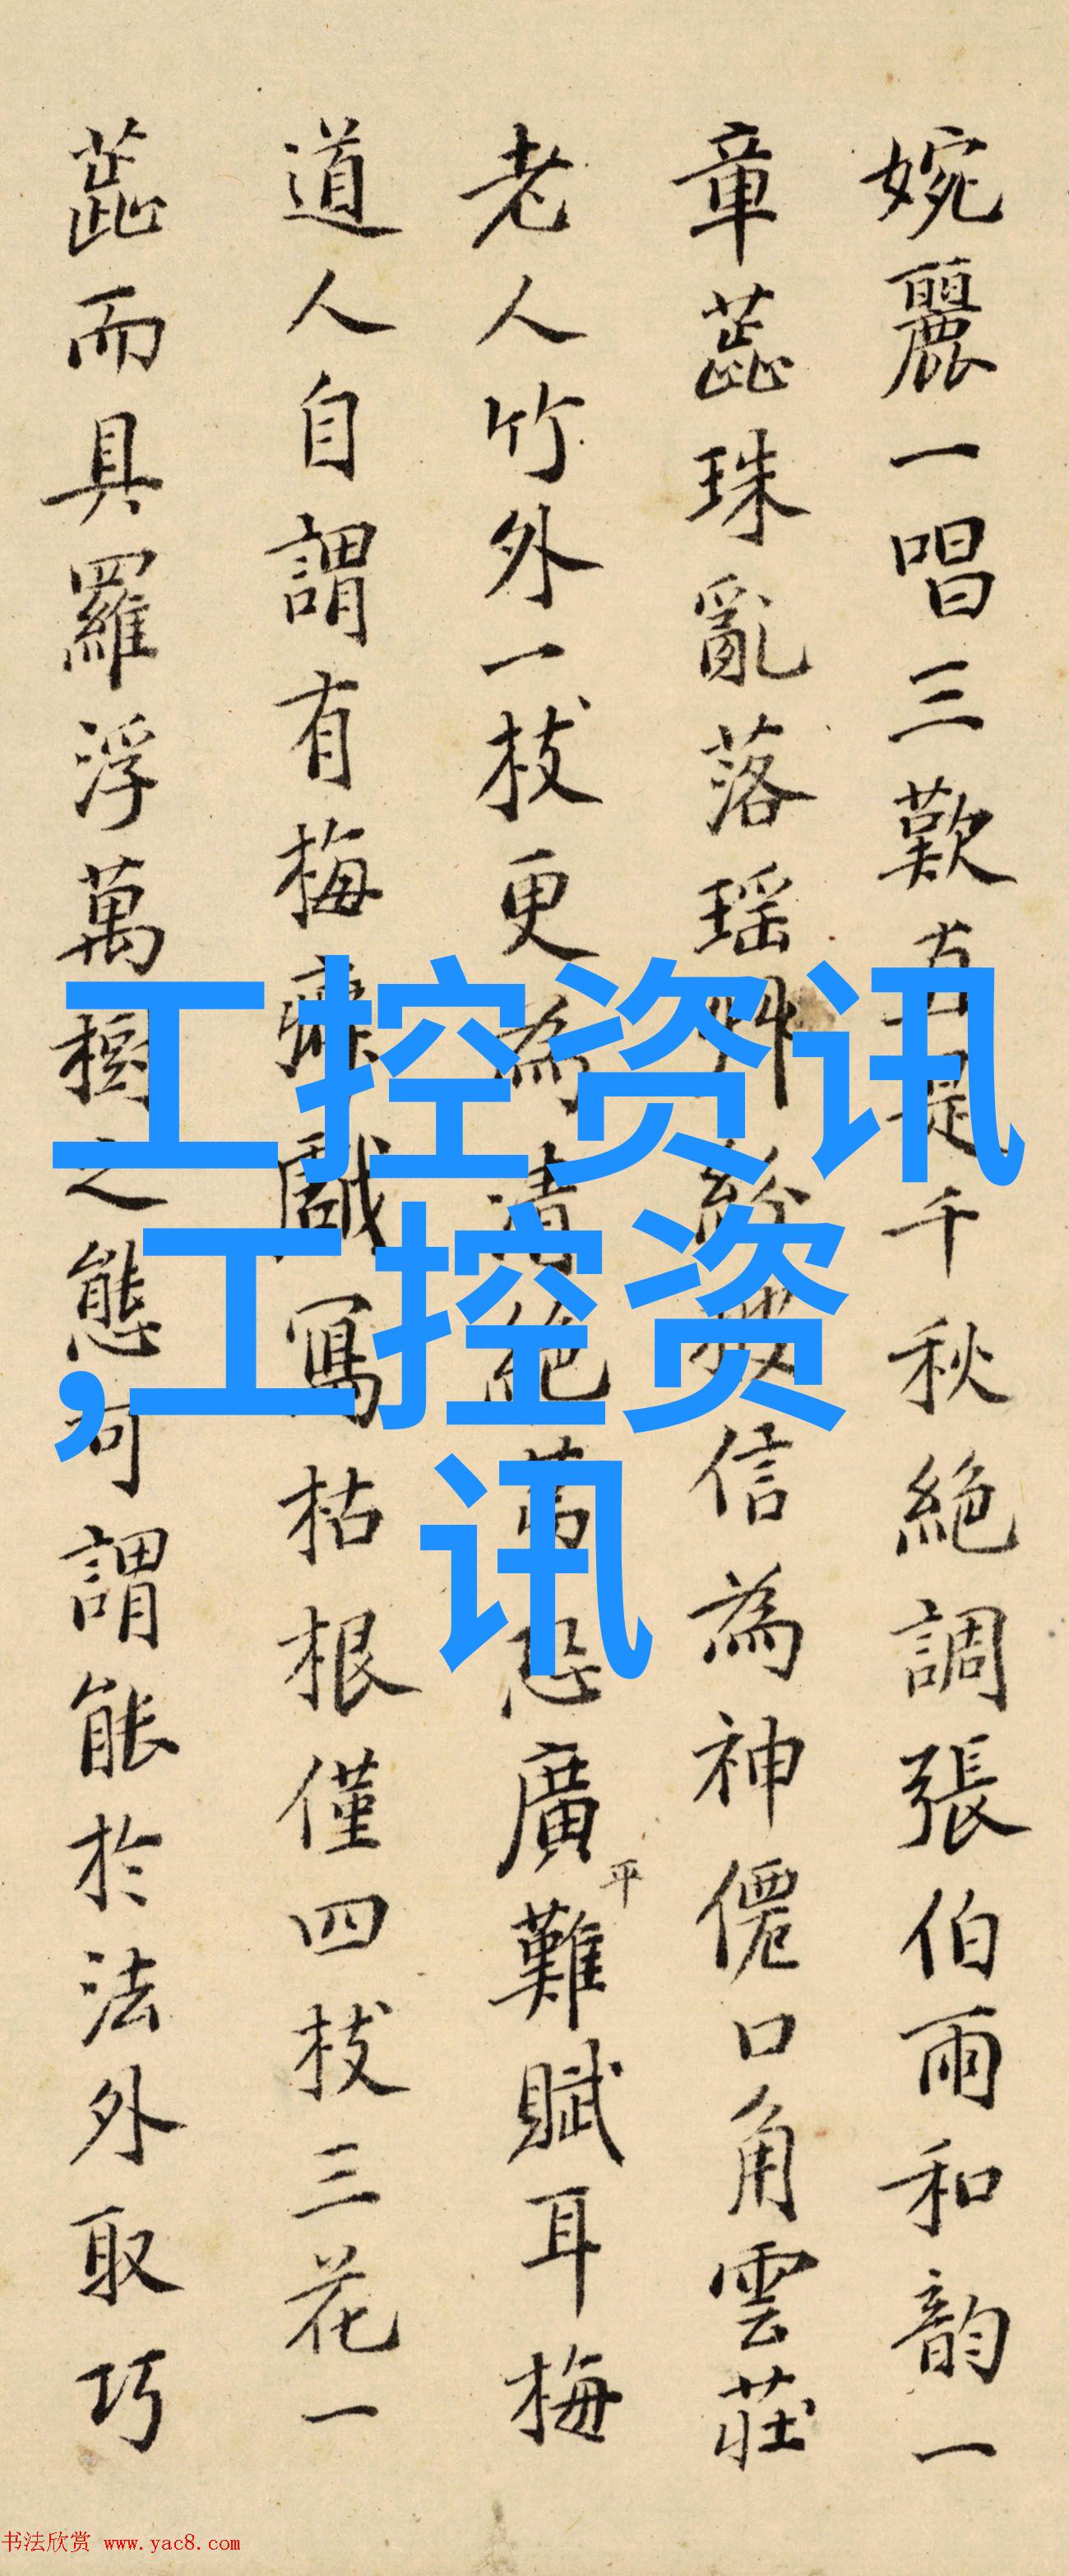 婉麗一唱三歎古是千秋絶調張伯雨和韵一
章蕊珠亂落瑶艸紛披信為神僊口角雲莊
老人竹外一枝更為清絶苐恐廣平難賦耳梅
道人自謂有梅癖戲寫枯根僅四枝三花一
蕊而具羅浮萬樹之態可謂能於法外取巧
工控资讯
,工控资
讯
书法欣赏 www.yac8.com